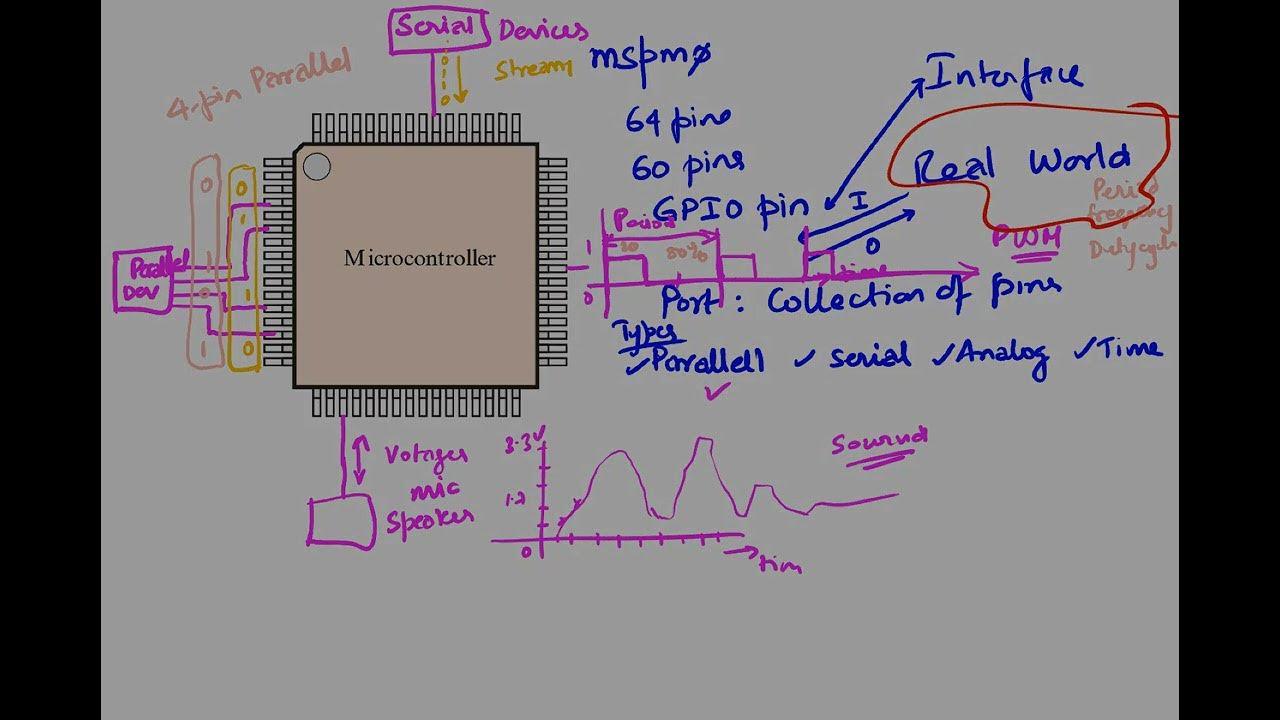 Serial Devices
Stream
mspmø
4-pin Parrallel
Interface
64 pins
60 pins
Real World
GPIO pin
I
O
Period
frequency
Duty cycle
PWM
Period
80%
1
0
time
0
0
1
1
0
1
1
0
Parallel
Dev
Microcontroller
Port : Collection of pins
Types
Parallell Serial Analog Time
Sound
3.3V
1.2
0
tim
Votages
mic
Speaker